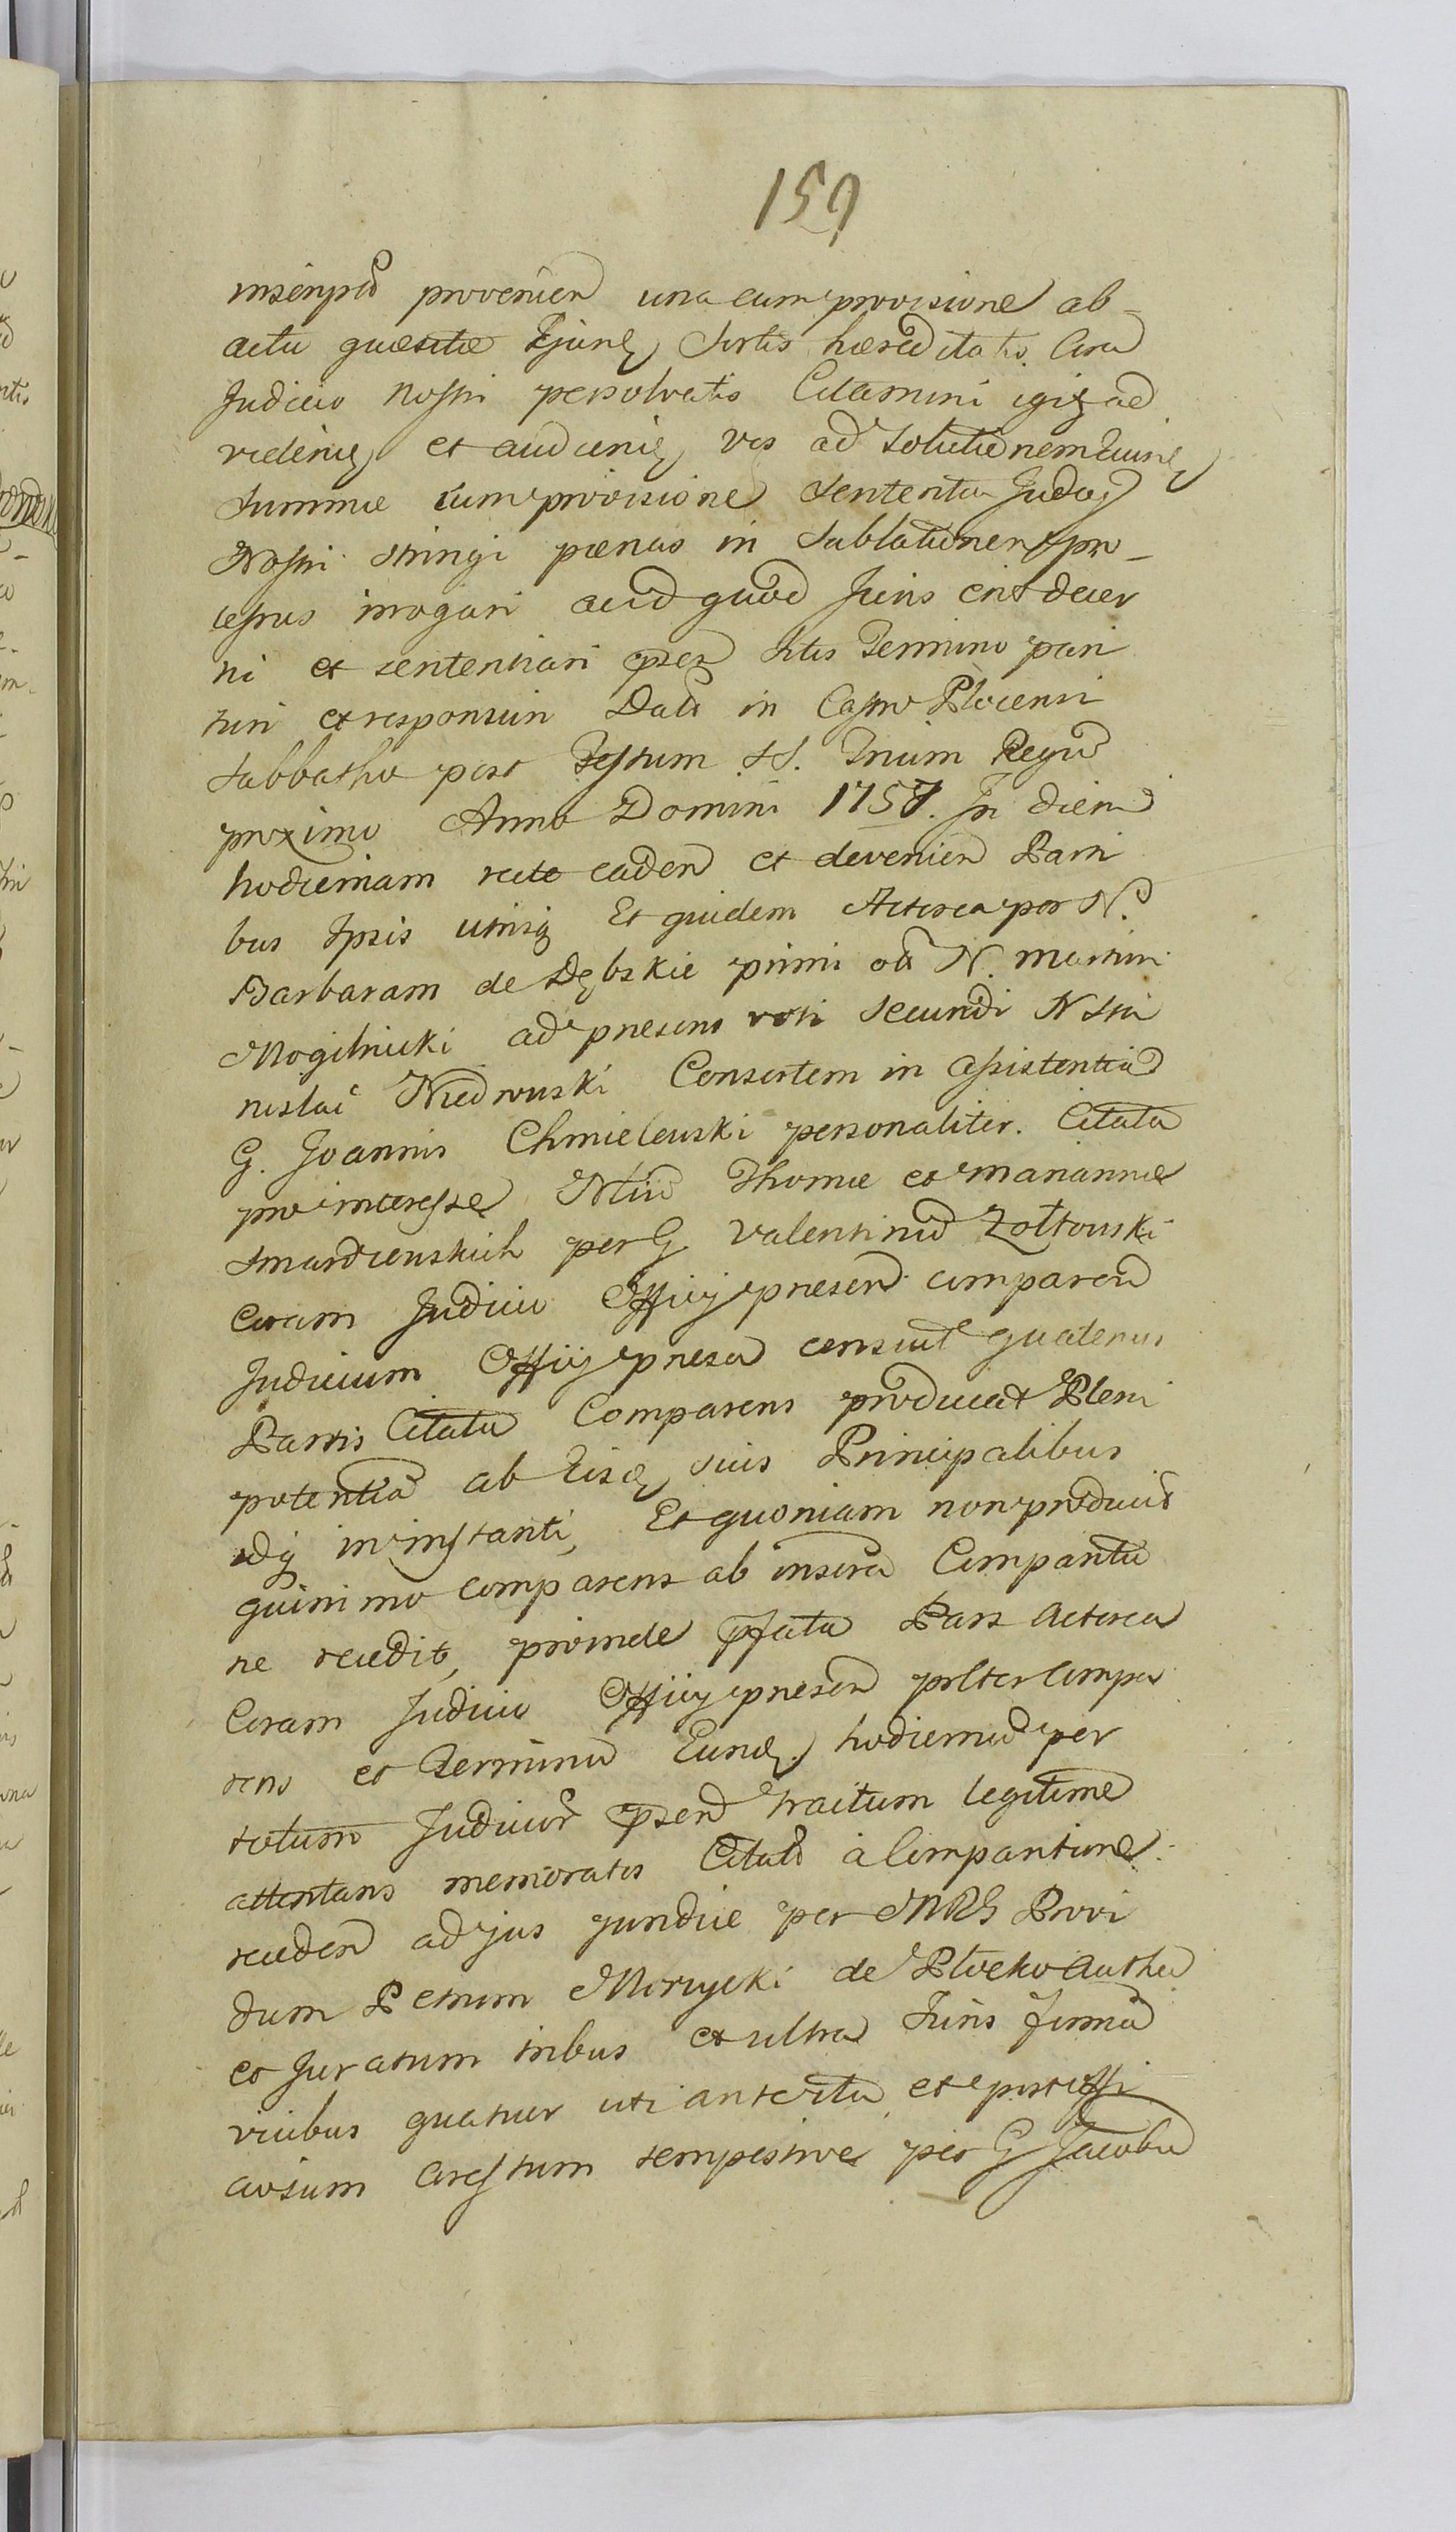 159
inscript provenien una cum provisione ab-
actu quæsitæ Ejusq sortis hæreditatis Cora
Judicio Nostri persolvatis Citamini igiq ad
vidеnq et audienq vos ad solutionem Eiusq
summæ cum provisione Sententia Judig
Nostri stringi pænas in sublationem pro-
cessus irrogari aliud quod Juris erit decer
ni et sententiari psen Litis Termino pari
turi et responsuri Datt in Castro Plocensi
Sabbatho post Festum SS. Trium Regum
proximo Anno Domini 1757. In diem
hodiernam recte caden et devenien Parti
bus Ipsis utrisq Et quidem Actorea per N.
Barbaram de Dębskie primi oli N. Martini
Mogilnicki ad præsens voti secundi N Sta
nislai Niedrouski Consortem in assistentia
G. Joannis Chmielewski personaliter. Citata
pro interesse Nliu Thomæ et Mariannæ
Smardzewskich per G Valentinu Zołtowski
Coram Judicio Officij præsen comparen
Judicium Officij præsen censuit quatenus
Partis Citatæ Comparens producat Pleni
potentia ab Eisq suis Principalibus
idq in instanti, Et quoniam non produxit
quinimo comparens ab inscra Comparitio
ne recedit, proinde pfata Pars Actorea
Coram Judicio Officij præsen plter compa
rens et Terminu Eunq hodiernu per
totum Judicior psen tractum legitime
attentans memoratos Citatt a Comparitione
receden ad jus juridice per MRG Provi
dum Petrum Morzycki de Plocko Authen
et Juratum tribus et ultra Juris forma
vicibus quatuor uti antеrtu et post offi
ciosum Arestum tempestive per G Jacobu